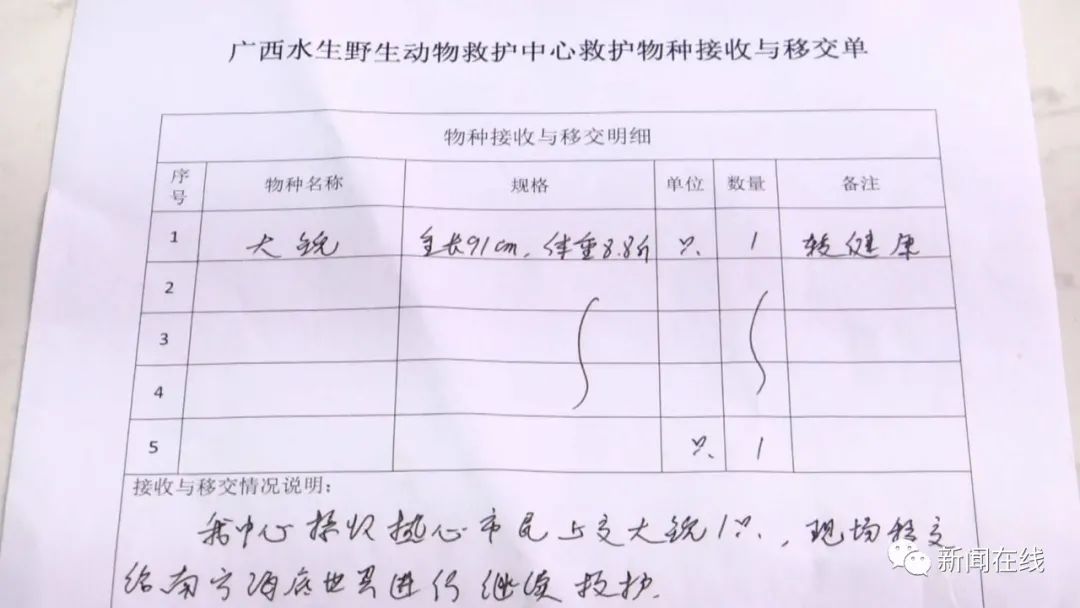 广西水生野生动物救护中心救护物种接收与移交单
物种接收与移交明细
序号 物种名称 规格 单位 数量 备注
1 大鲵 全长91cm,体重8.8斤 只 1 较健康
2
3
4
5 只 1
接收与移交情况说明:
我中心接收热心市民上交大鲵1只,现场移交
给南宁海底世界进行继续救护.
新闻在线